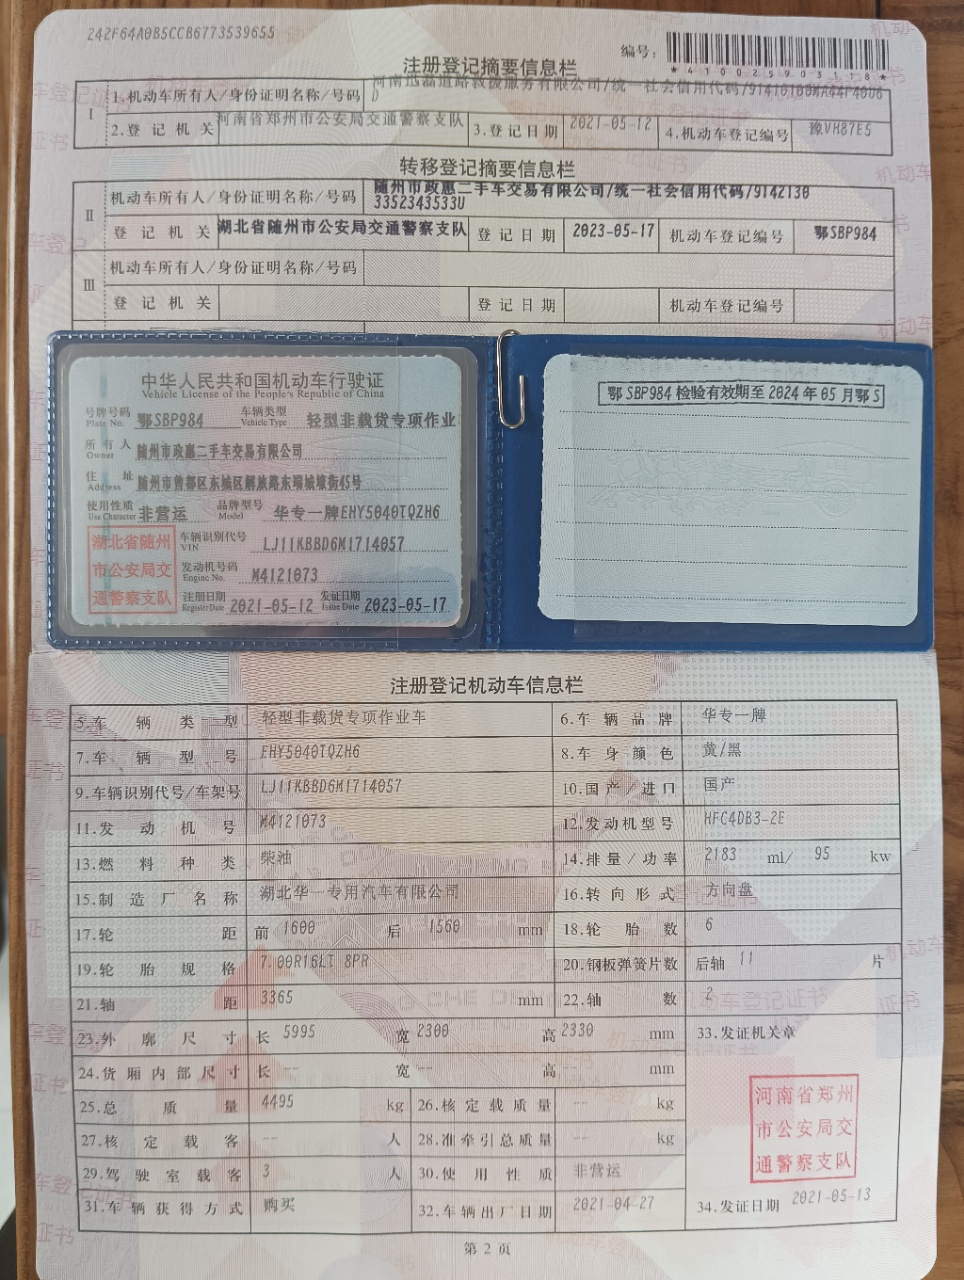 242F64A0B5CCB6773539655
编号:
*410025903118*
注册登记摘要信息栏
Ⅰ 1.机动车所有人/身份证明名称/号码 河南迅磊道路救援服务有限公司/统一社会信用代码/91410100MA44P40U6
D
2.登记机关 河南省郑州市公安局交通警察支队 3.登记日期 2021-05-12 4.机动车登记编号 豫VH87E5
转移登记摘要信息栏
Ⅱ 机动车所有人/身份证明名称/号码 随州市政惠二手车交易有限公司/统一社会信用代码/9142130
3352343533U
登记机关 湖北省随州市公安局交通警察支队 登记日期 2023-05-17 机动车登记编号 鄂SBP984
Ⅲ 机动车所有人/身份证明名称/号码
登记机关 登记日期 机动车登记编号
中华人民共和国机动车行驶证
Vehicle License of the People's Republic of China
号牌号码 鄂SBP984 车辆类型 轻型非载货专项作业
Plate No. Vehicle Type
所有人 随州市政惠二手车交易有限公司
Owner
住址 随州市曾都区东城区解放路东瑞城壕街45号
Address
使用性质 非营运 品牌型号 华专一牌EHY5040TQZH6
Use Character Model
湖北省随州
市公安局交
通警察支队
车辆识别代号 LJ11KBBD6M1714057
VIN
发动机号码 M4121073
Engine No.
注册日期 2021-05-12 发证日期 2023-05-17
Register Date Issue Date
鄂SBP984检验有效期至2024年05月鄂S
注册登记机动车信息栏
5.车辆类型 轻型非载货专项作业车 6.车辆品牌 华专一牌
7.车辆型号 EHY5040TQZH6 8.车身颜色 黄/黑
9.车辆识别代号/车架号 LJ11KBBD6M1714057 10.国产/进口 国产
11.发动机号 M4121073 12.发动机型号 HFC4DB3-2E
13.燃料种类 柴油 14.排量/功率 2183 ml/ 95 kw
15.制造厂名称 湖北华一专用汽车有限公司 16.转向形式 方向盘
17.轮距 前 1600 后 1560 mm 18.轮胎数 6
19.轮胎规格 7.00R16LT 8PR 20.钢板弹簧片数 后轴 11 片
21.轴距 3365 mm 22.轴数 2
23.外廓尺寸 长 5995 宽 2300 高 2330 mm 33.发证机关章
24.货厢内部尺寸 长 -- 宽 -- 高 -- mm
25.总质量 4495 kg 26.核定载质量 -- kg
27.核定载客 -- 人 28.准牵引总质量 -- kg
29.驾驶室载客 3 人 30.使用性质 非营运
31.车辆获得方式 购买 32.车辆出厂日期 2021-04-27 34.发证日期 2021-05-13
河南省郑州
市公安局交
通警察支队
第 2 页